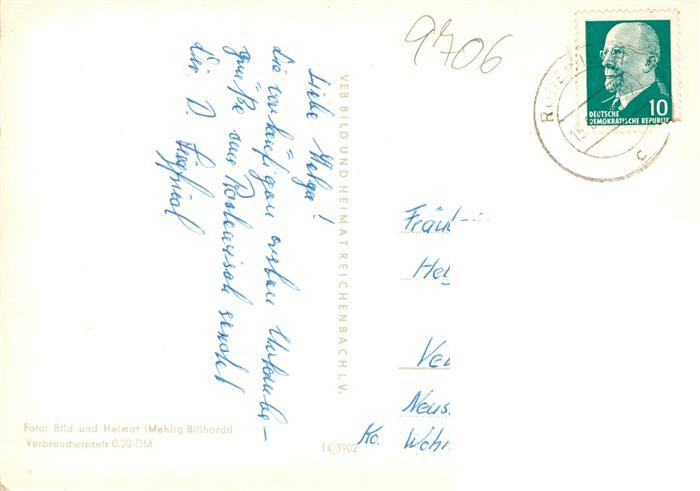 9706
RODEWIS
10
DEUTSCHE
DEMOKRATISCHE REPUBLIK
c
Liebe Helga!
die vorläufigen ersten Urlaubs-
grüße aus Rodewisch sendet
Dir D. Siegfried
VEB BILD UND HEIMAT REICHENBACH i. V.
Fräul
Hel
Ve
Neus
Ko. Wohn
Foto: Bild und Heimat (Mehlig Billhardt)
Verbraucherpreis 0.20 DM
14/3902